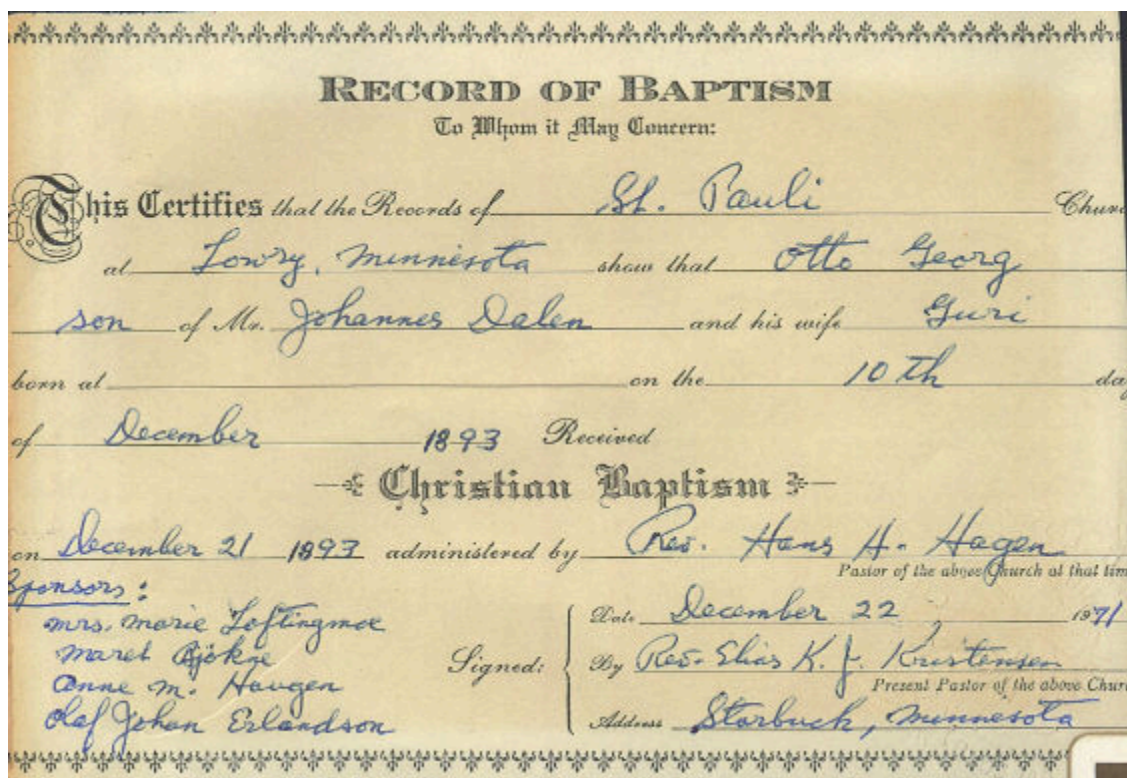 RECORD OF BAPTISM
To Whom it May Concern:
This Certifies that the Records of St. Pauli Churc
at Lowry, Minnesota show that Otto Georg
son of Mr. Johannes Dalen and his wife Guri
born at on the 10th day
of December 1893 Received
Christian Baptism
on December 21 1893 administered by Rev. Hans H. Hagen
Pastor of the above Church at that tim
Sponsors:
Mrs. Marie Loftingmoe
Maret
Anne M. Haugen
Olaf Johan Erlandson
Signed:
Date December 22, 1971
By Rev. Elias K. J. Kristensen
Present Pastor of the above Churc
Address Starbuck, Minnesota